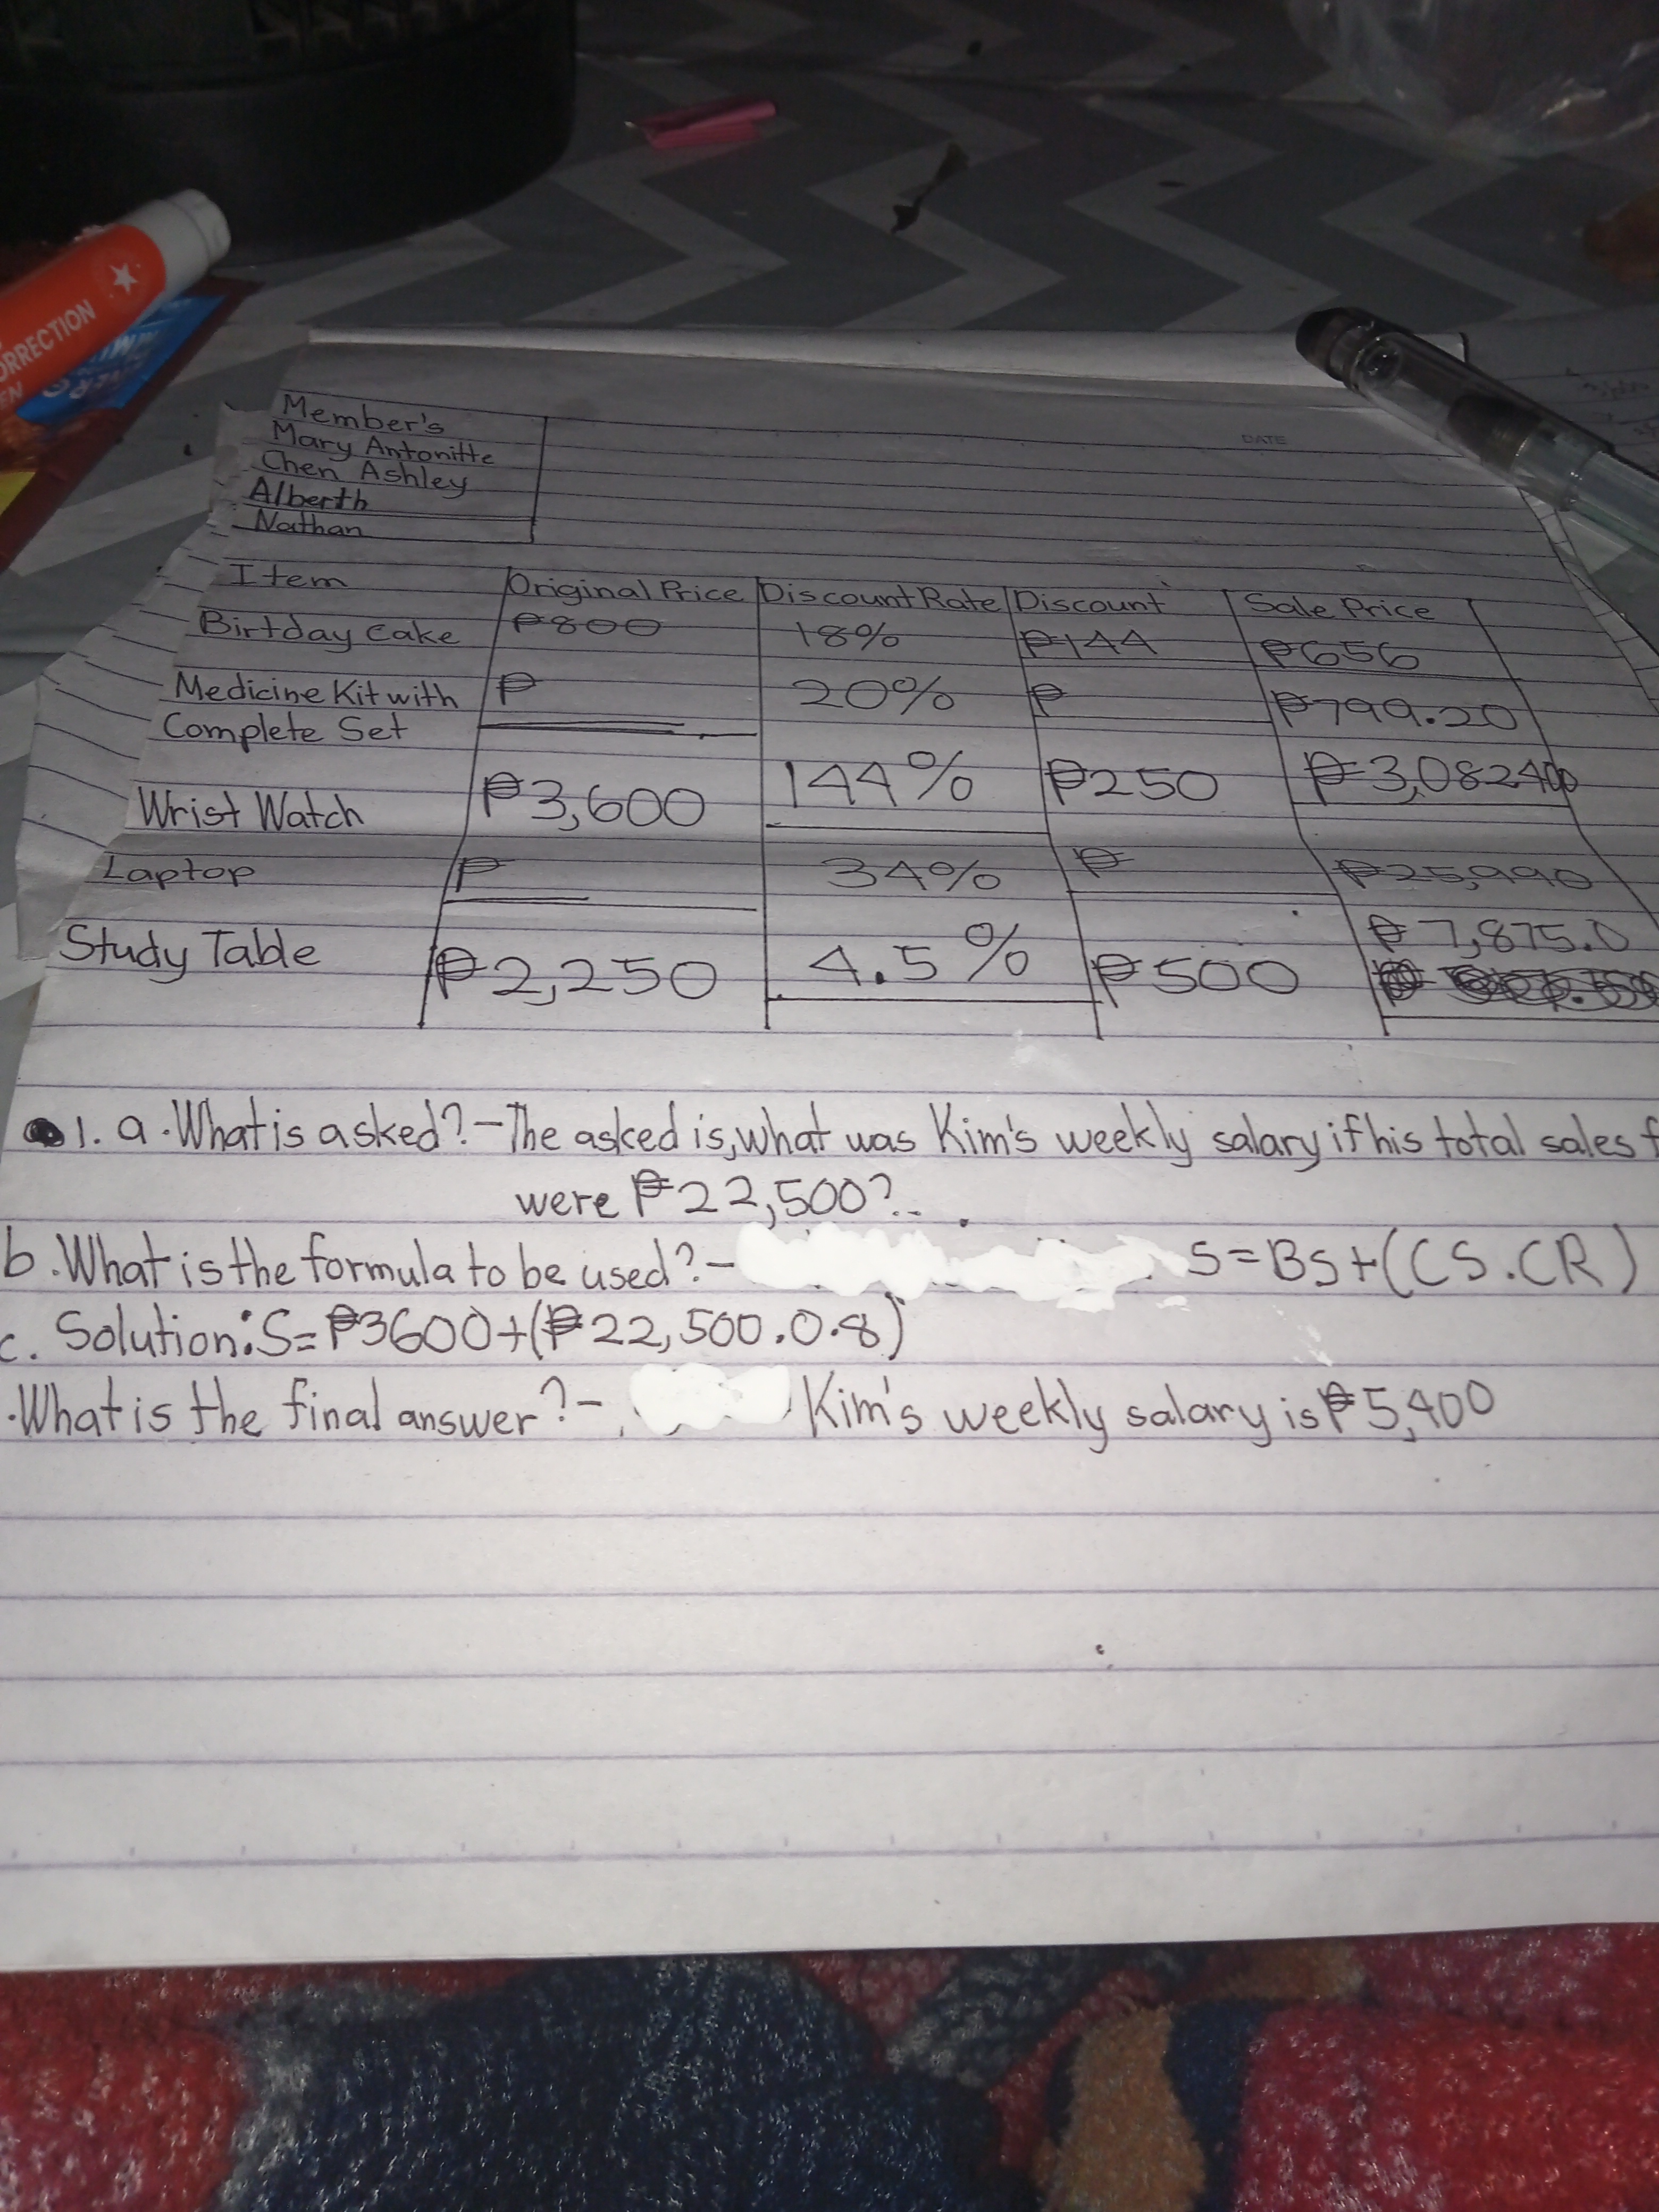 ORRECTION
EN
DATE
Member's
Mary Antonitte
Chen Ashley
Alberth
Nathan
Item Original Price Discount Rate Discount Sale Price
Birtday Cake ₱800 18% ₱144 ₱656
Medicine Kit with ₱ 20% ₱ ₱799.20
Complete Set
Wrist Watch ₱3,600 144% ₱250 ₱3,082400
Laptop ₱ 34% ₱ ₱25,990
₱ 7,875.0
Study Table ₱2,250 4.5% ₱500
1. a. What is asked? - The asked is, what was Kim's weekly salary if his total sales f
were ₱22,500?
b. What is the formula to be used? - S=BS+(CS.CR)
c. Solution: S=₱3600+(₱22,500.0.8)
.What is the final answer? - Kim's weekly salary is ₱5,400